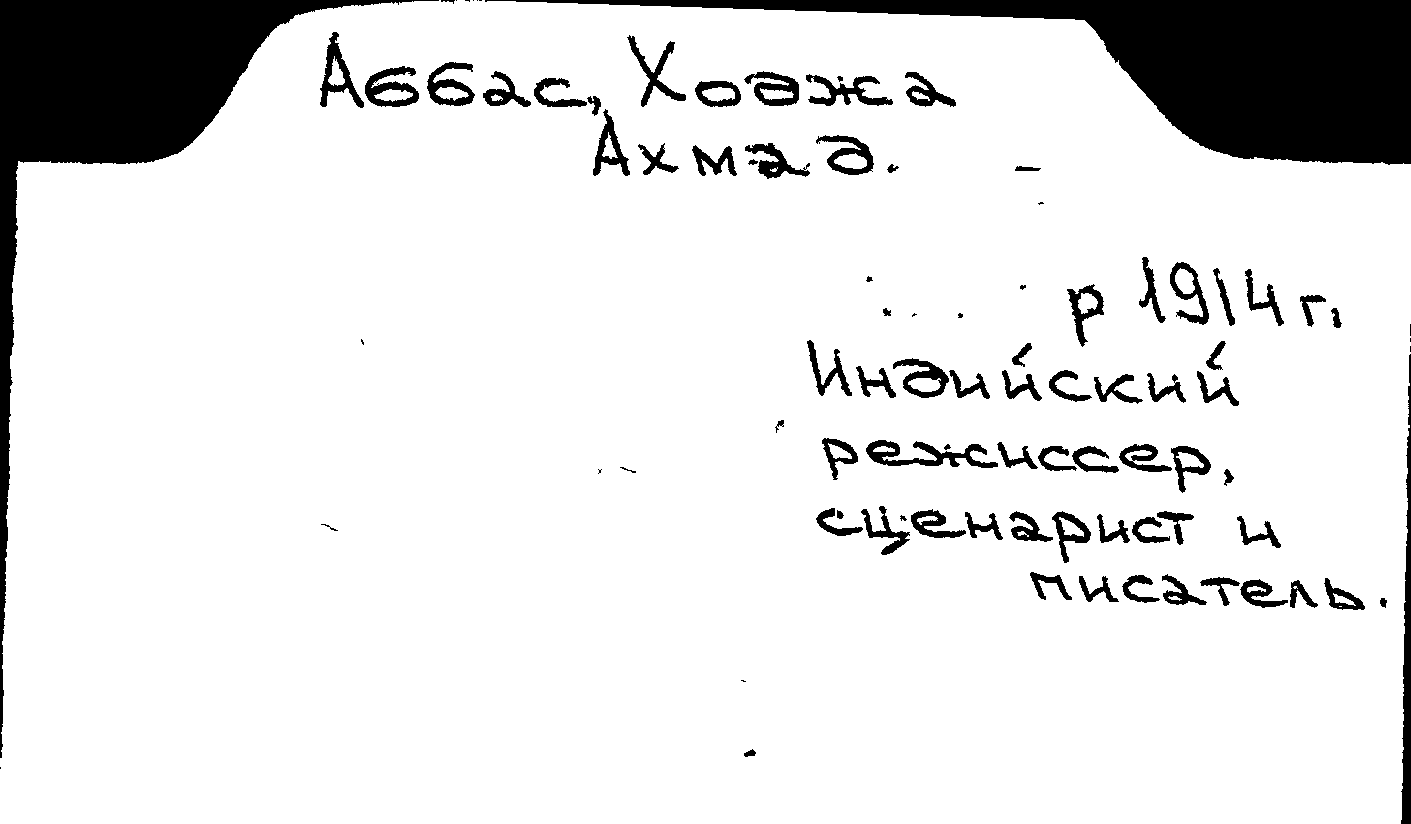 Аббас, Ходжа
Ахмад.
р 1914 г.
Индийский
режиссер,
сценарист и
писатель.